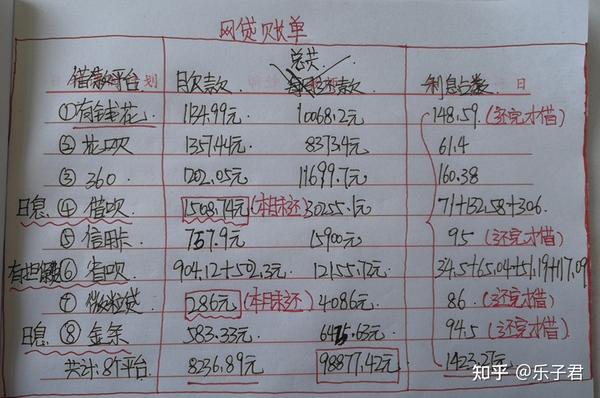 网贷账单
总共
借款平台 划 目欠款 利息点数 日
①有钱花 1134.99元 10068.2元 148.59 (还完才借)
② 1357.44元 8373.4元 61.4
③ 360 1202.05元 11699.7元 160.38
日息 ④ 借呗 1508.74元 (本月未还) 30255.1元 71+132.58+306
⑤ 信用卡 757.9元 15900元 95 (还完才借)
⑥ 省呗 904.12+502.3元 12155.72元 34.5+65.04+51.19+17.09
⑦ 微粒贷 286元 (本月未还) 4086元 86 (还完才借)
日息 ⑧ 金条 583.33元 63元 94.5 (还完才借)
共计:8个平台 8236.89元 98877.42元 1423.27元
知乎 @乐子君